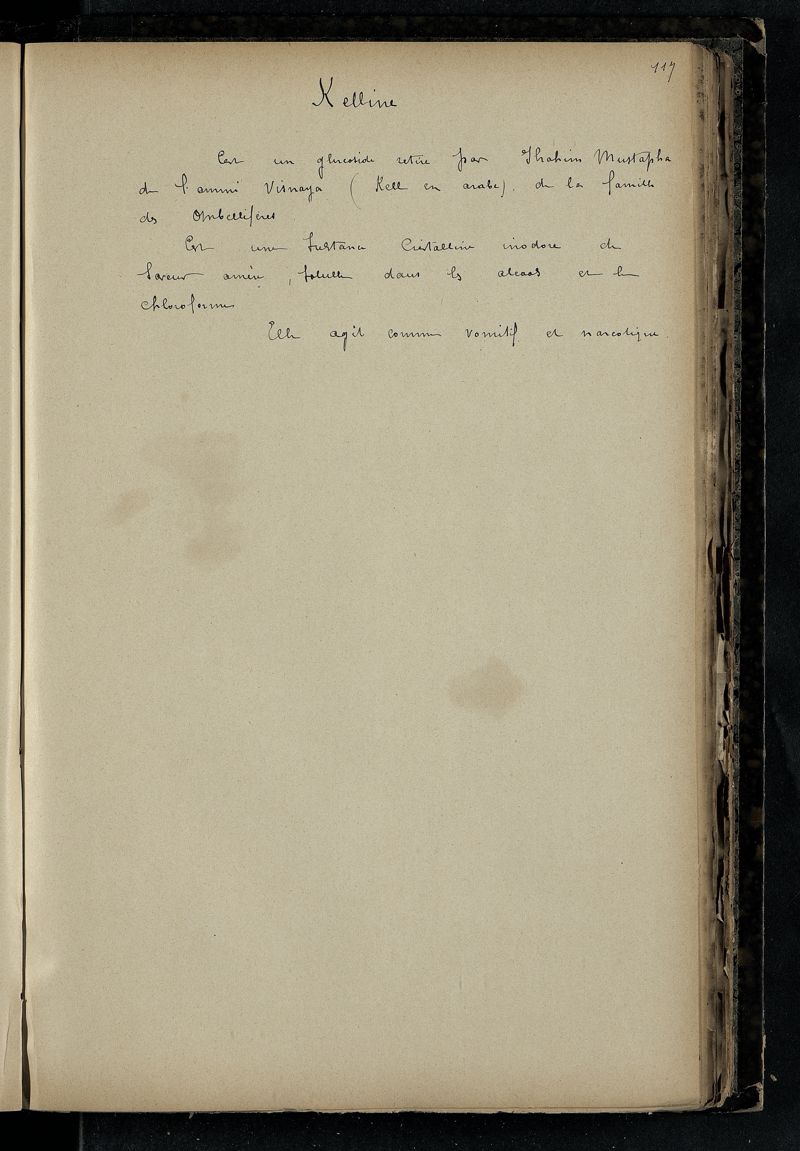 117
Kelline
C'est un glucoside retiré par Ibrahim Mustapha
de l'ammi Visnaga (Kell en arabe), de la famille
des Ombellifères
Est une substance cristalline inodore de
saveur amère, soluble dans les alcools et le
chloroforme
Elle agit comme vomitif et narcotique.